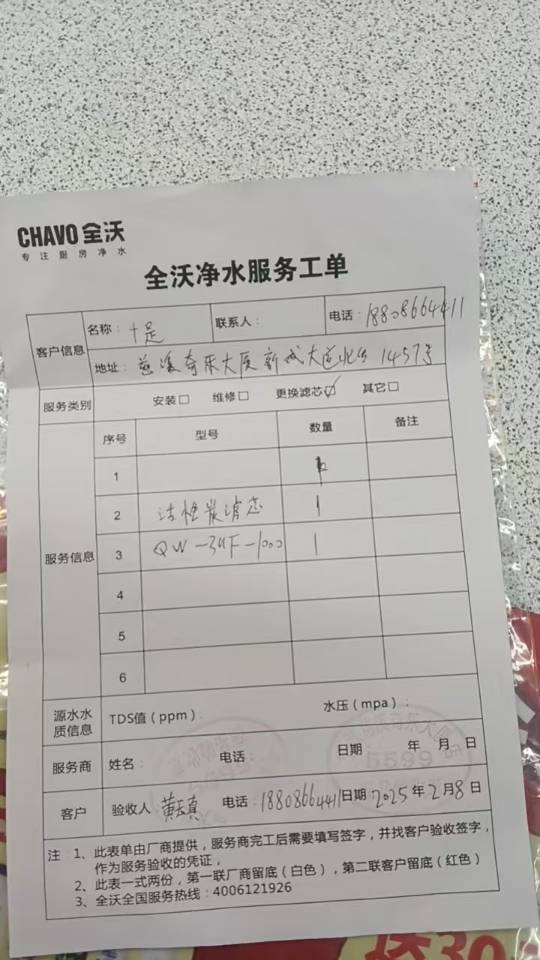 CHAVO 全沃
专注厨房净水
全沃净水服务工单
客户信息
名称：十足 联系人： 电话：18808664411
地址：慈溪奇乐大厦新城大道北路1457号
服务类别 安装□ 维修□ 更换滤芯☑ 其它□
服务信息
序号 型号 数量 备注
1
2 活性炭滤芯 1
3 QW-34F-1000 1
4
5
6
源水水质信息 TDS值（ppm）： 水压（mpa）：
服务商 姓名： 电话： 日期 年 月 日
客户 验收人 电话：18808664411 日期 2025年2月8日
注 1、此表单由厂商提供，服务商完工后需要填写签字，并找客户验收签字，
作为服务验收的凭证，
2、此表一式两份，第一联厂商留底（白色），第二联客户留底（红色）
3、全沃全国服务热线：4006121926
5599
送30